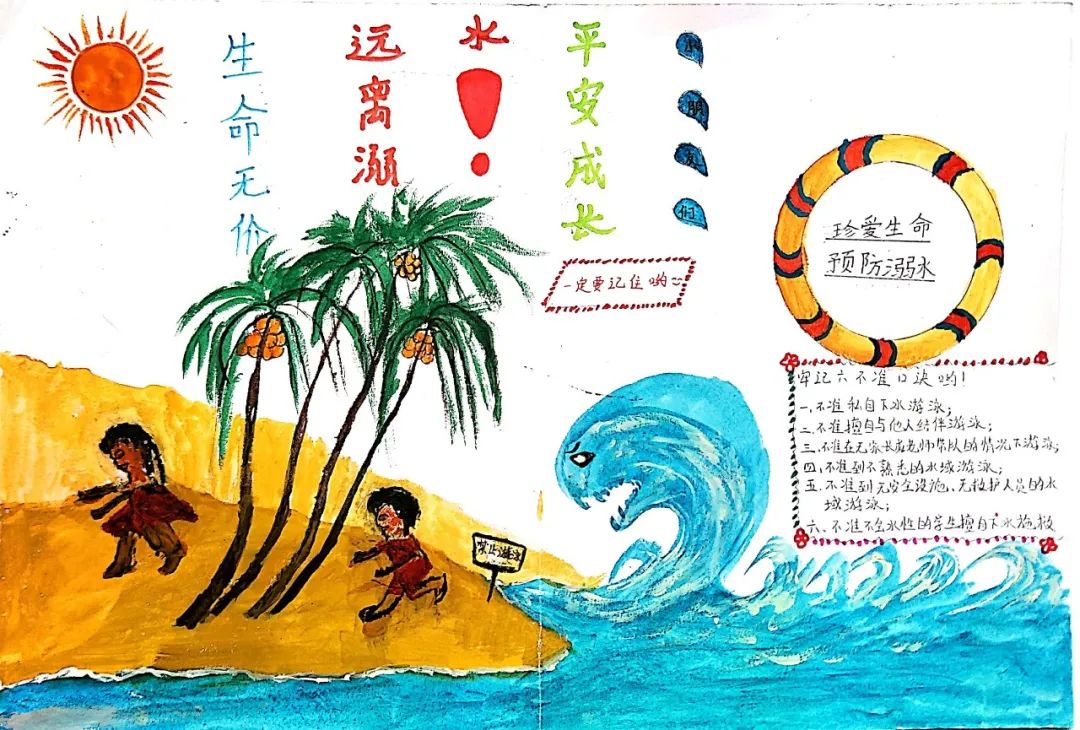 生命无价
远离溺
水!
平安成长
小朋友们
一定要记住哟
珍爱生命
预防溺水
牢记六不准口诀哟!
一、不准私自下水游泳;
二、不准擅自与他人结伴游泳;
三、不准在无家长或老师带队的情况下游泳;
四、不准到不熟悉的水域游泳;
五、不准到无安全设施、无救护人员的水
域游泳;
六、不准不会水性的学生擅自下水施救
禁止游泳